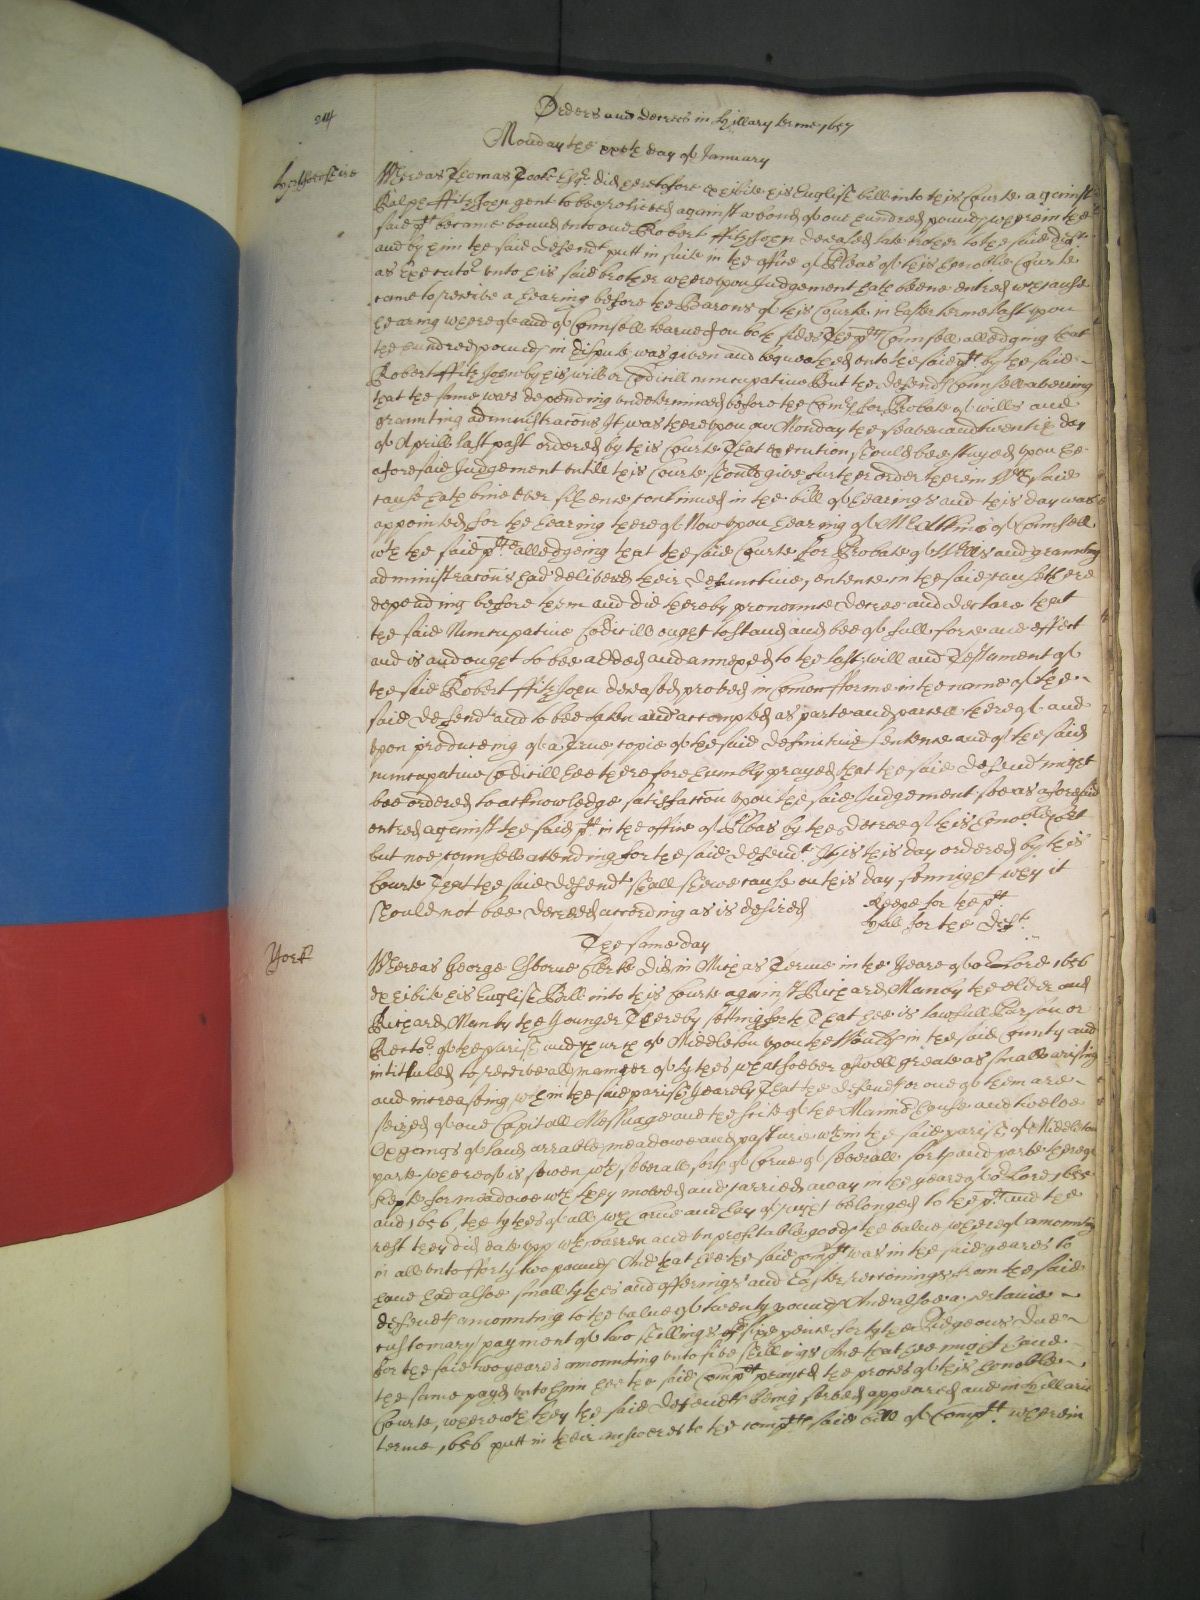 244
Orders and decrees in Hillary terme 1657
Monday the xxvth day of January
Whereas Thomas Toote Esqr. did heretofore exhibite his English bill into this Courte against
Ralph ffitzJohn gent to bee releived against a bond of one hundred pounds wherein the
said plt became bound unto one Robert ffitzJohn deceased late brother to the said deft
and by him the said defendt putt in suite in the office of Pleas of this honoble Courte
as Executor unto his said brother whereupon Judgement hath beene entred wch cause
came to receive a hearing before the Barons of this Courte in Easter terme last upon
hearing whereof and of Counsell learned on both sides The plts Counsell alledging that
the hundred pounds in dispute was given and bequeathed unto the said plt by the said
Robert ffitzJohn by his will or Codicill nuncupative But the defendts Counsell averring
that the same was depending undetermined before the Comrs for Probate of wills and
graunting administracons It was thereupon on Monday the seaven and twentith day
of Aprill last past ordered by this Courte That execution should bee stayed upon the
aforesaid Judgement untill this Courte should give further order therein Wch said
cause hath bine ever silence continued in the bill of hearings and this day was
appointed for the hearing thereof Now upon hearing of Mr of Counsell
wth the said plt alledgeing that the said Courte for Probate of Wills and graunting
administracons had delivered their definitive sentence in the said cause there
depending before them and did thereby pronounce decree and declare that
the said Nuncupative Codicill ought to stand and bee of full force and effect
and is and ought to bee added and annexed to the last will and Testament of
the said Robert ffitzJohn deceased proved in Comon fforme in the name of the
said defendt and to bee taken and accompted as parte and parcell thereof and
upon produceing of a True copie of the said definitive sentence and of the said
nuncupative Codicill hee therefore humbly prayed that the said defendt might
bee ordered to acknowledge satisfaccon upon the said Judgement soe as aforesaid
entred against the said plt in the office of Pleas by the decree of this honoble Cort
but noe counsell attending for the said defendt It is this day ordered by this
Courte That the said defendt shall shewe cause on this day sennight why it
should not bee decreed according as is desired
for the plt
Hall for the deft
York
The same day
Whereas George Osborne Clerke did in Michas Terme in the yeare of or Lord 1656
exhibite his English Bill into this Courte against Richard Manby the elder and
Richard Manby the younger Thereby setting forth That hee is lawfull Parson or
Rector of the parish and church of Middleton upon the Woulds in the said County and
intituled to receive all manner of tythes whatsoever aswell greate as small arising
and increasing wthin the said parish yearely That the defendts or one of them are
seized of one Capitall Messuage and the scite of the Mannor house and twelve
Oxgangs of land arrable meadowe and pasture wthin the said parish of Middleton
parte whereof is sowen wth severall sorts of Corne of severall sorts and parte thereof
kepte for meadowe wch they mowed and carried away in the yeares of or Lord 1655
and 1656, the tythes of all wch corne and hay of right belonged to the plt and the
rest they did eate upp wth barren and unprofitable goods the value whereof amounting
in all unto fforty two pounds And that hee the said complt was in the said yeares to
have had alsoe small tythes and offerings and Easter reconings from the said
defendts amounting to the value of twenty pounds And alsoe a certaine
customary payment of two shillings and sixe pence for tythe Pidgeons due
for the said two yeares amounting unto five shillings And that hee might have
the same payd unto him hee the said Complt prayed the proces of this honoble
Courte, wherewth they the said defendts being served appeared and in Hillarie
terme 1656 putt in their answeres to the complts said bill of Complt wherein